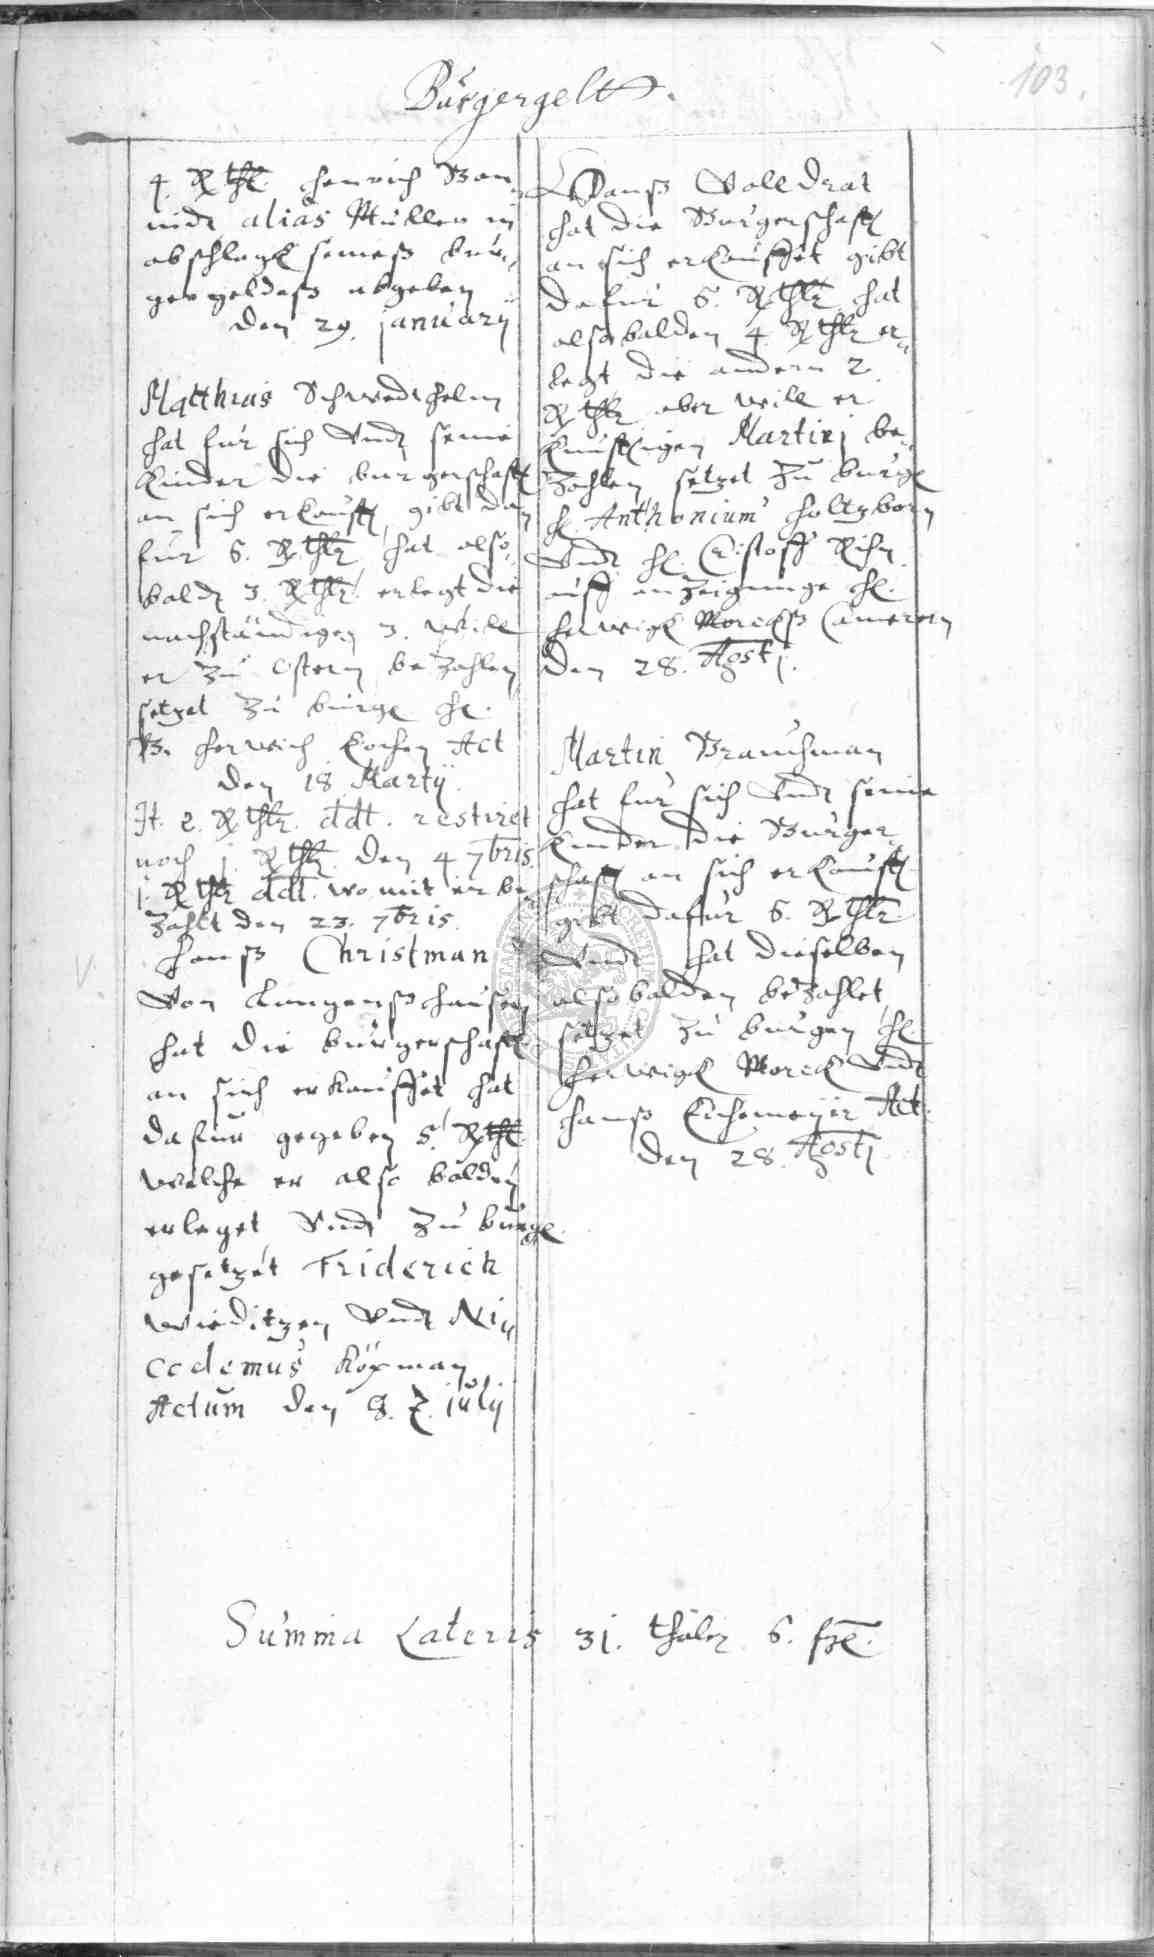 Bürgergeltt.
103.
4. Rthl. Henrich Bon¬
nidt alias Müller in
abschlagk seines bur¬
gergeldeß abgeben
den 29. january
Matthias Schwedthelm
hat fur sich vndt seine
Kinder die burgerschafft
an sich erkaufft gibt da
fur 6. Rthlr hat also¬
baldt 3. Rthlr erlegt die
nachständigen 3. will
er zu Ostern bezahlen
setzet zu burge H.
B. Herwich Act
den 18 Martij
It. 2. Rthlr. ddt. restiret
noch j. Rthlr den 4 7bris
j. Rthlr ddt. wo mit er be
zahlt den 23. 7bris.
Hanß Christman
von Lungenßhausen
hat die bürgerschafft
an sich erkauffet hat
dafür gegeben 6. Rthl
welche er also balden
erleget vndt zu bürge
gesetzet Friderich
wieditzen vndt Ni¬
codemus Köxman
Actum den 8. t. julij
Hanß Volldrat
hat die Burgerschafft
an sich erkauffet gibt
dafür 6. Rthlr hat
alsobalden 4 Rthlr er¬
legt die andern 2.
Rthlr aber will er
kunfftigen Martinj be¬
zahlen setzet zu burge
H. Anthonium Holtzborn
vndt H. Cristoff Rihn
auff anzeigunge H.
Herwigk Morckß Camerern
den 28. Agostj.
Martin Brauhman
hat fur sich vndt seine
Kinder die Burger¬
schafft an sich erkaufft
gibt dafur 6. Rthlr
vndt hat dieselben
alsobalden bezahlet
setzet zu burgen H.
Herwigk Morck vndt
Hanß Eichemeyer Act.
den 28. Agostj
Summa Lateris 31. thaler 6.